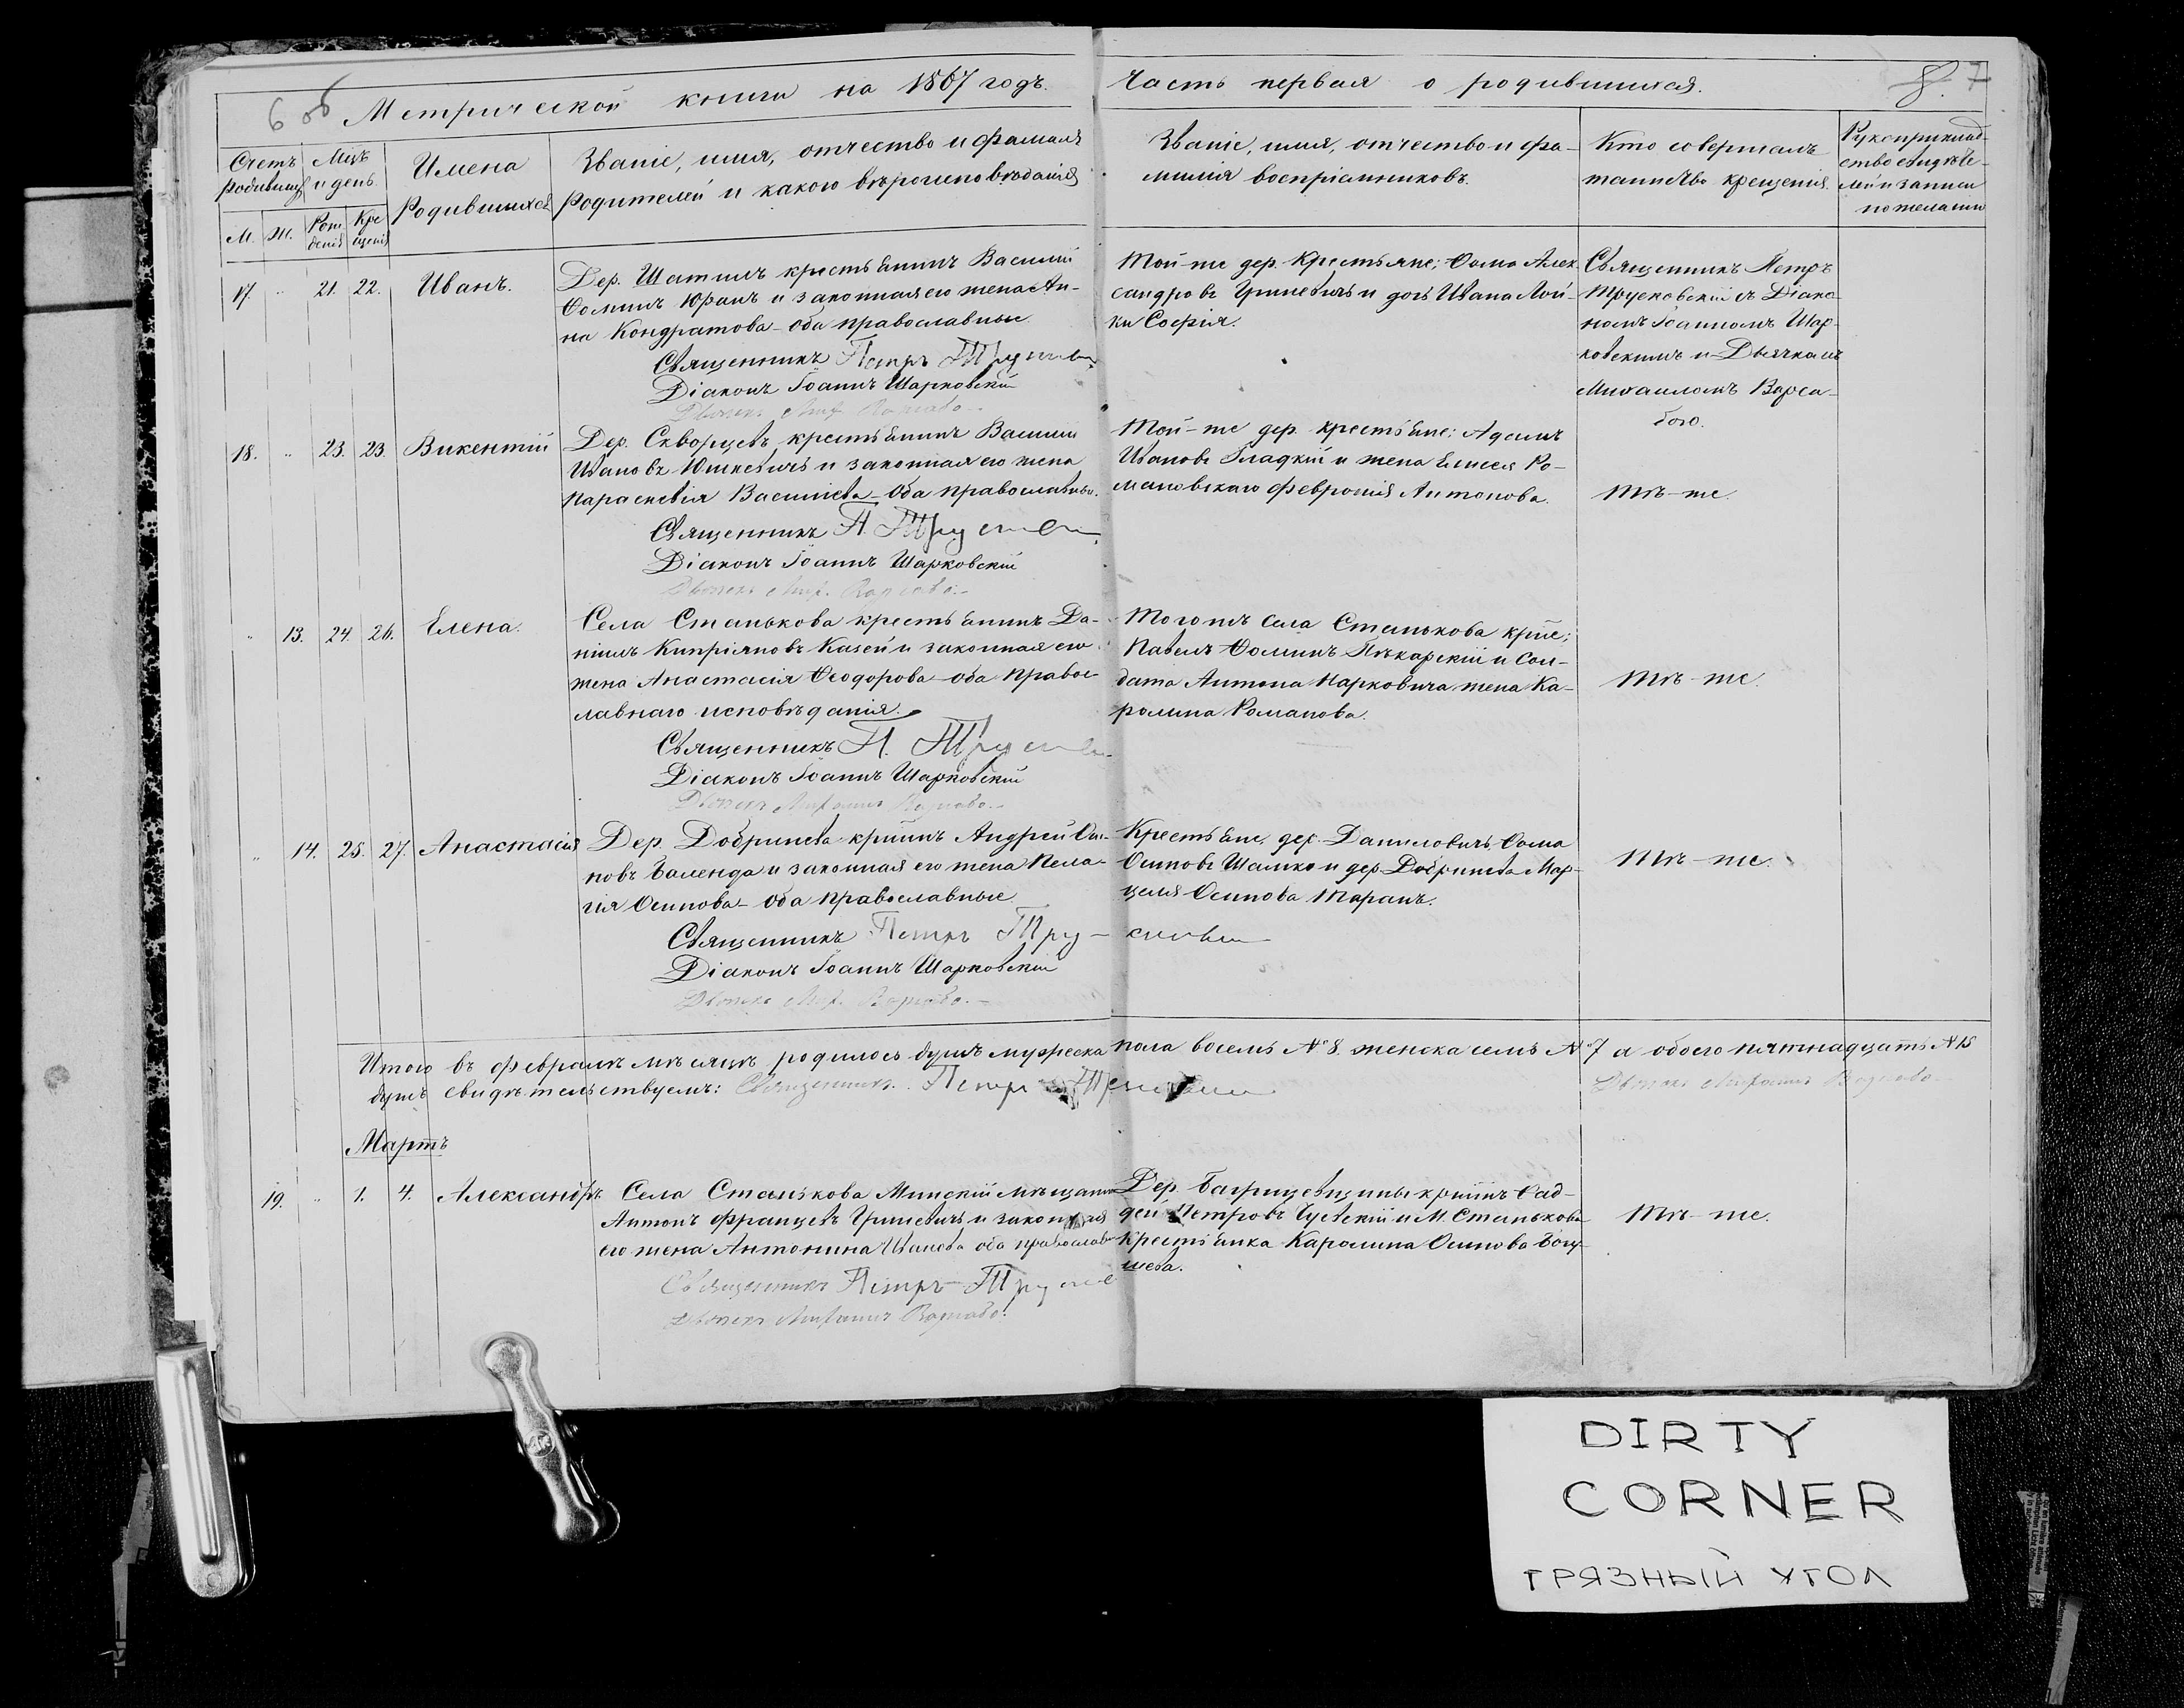 6 об Метрической книги на 1867 годъ.
Часть первая о родившихся.
8. 7
Счетъ родившихся
М. Ж.
Мцъ и день
Рож денія
Кре щенія
Имена
Родившихся
Званіе, имя, отчество и фамилія
родителей и какого вѣроисповѣданія
Званіе, имя, отчество и фа-
милія воспріемниковъ.
Кто совершалъ
таинство крещенія.
Рукоприклад-
ство свидѣте-
лей и записи
по желанію
17. " 21. 22. Иванъ.
Дер. Шатилъ крестьянинъ Василій
Ѳоминъ Юранъ и законная его жена Ан-
на Кондратова - оба православные.
Священникъ Петръ
Діаконъ Іоаннъ Шарковскій
Той-же дер. Крестьяне; Ѳома Алек-
сандровъ Гриневичъ и дочь Ивана Лой-
ки Софія.
Священникъ Петръ
Трусковскій съ Діако-
номъ Іоанномъ Шар-
ковскимъ и Дьячкомъ
Михаиломъ Варса-
бою.
18. " 23. 23. Викентій
Дер. Скворцевъ крестьянинъ Василій
Ивановъ Юшкевичъ и законная его жена
Параскевія Васильева - оба православны.
Священникъ П.
Діаконъ Іоаннъ Шарковскій
Той-же дер. крестьяне: Адамъ
Ивановъ Гладкій и жена Елисея Ро-
мановскаго Февронія Антонова.
Тѣ-же.
" 13. 24. 26. Елена.
Села Станькова крестьянинъ Да-
ніилъ Кипріяновъ Казей и законная его
жена Анастасія Ѳеодорова - оба правос-
лавнаго исповѣданія.
Священникъ П.
Діаконъ Іоаннъ Шарковскій
Тогожъ села Станькова крне;
Павелъ Ѳоминъ Пѣкарскій и Сол-
дата Антона Парковича жена Ка-
ролина Романова.
Тѣ-же.
" 14. 25. 27. Анастасія
Дер. Добринева крнинъ Андрей Оси-
повъ Баленда и законная его жена Пела-
гія Осипова - оба православные.
Священникъ Петръ
Діаконъ Іоаннъ Шарковскій
Крестьяне, дер. Даниловичъ Ѳома
Осиповъ Шашко и дер. Добринева Мар-
целя Осипова Таранъ.
Тѣ-же.
Итого въ февралѣ мѣсяцѣ родилось душъ мужеска пола восемь № 8. женска семь № 7 а обоего пятнадцать № 15
душъ свидѣтельствуемъ: Священникъ Петръ
Мартъ
19. " 1. 4. Александръ
Села Станькова Минскій мѣщанинъ
Антонъ Францевъ Гриневичъ и законная
его жена Антонина Иванова оба православн
Священникъ Петръ
Дер. Багрицевщины крнинъ Ѳад-
дей Петровъ Гусевскій и М. Станькова
крестьянка Каролина Осипова Богу-
шева.
Тѣ-же.
DIRTY
CORNER
ГРЯЗНЫЙ УГОЛ